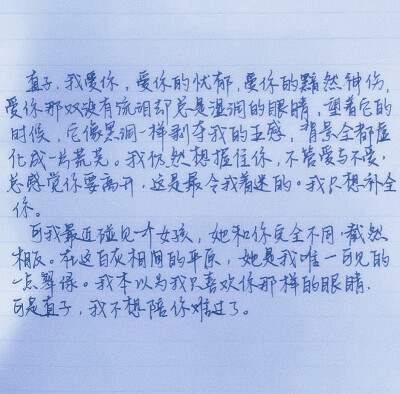 直子,我爱你,爱你的忧郁,爱你的黯然神伤,
爱你那双没有流泪却总是湿润的眼睛,望着它的
时候,它像黑洞一样剥夺我的五感,背景全都虚
化成一片荒芜。我仍然想握住你,不管爱与不爱,
总感觉你要离开,这是最令我着迷的。我只想补全
你。
可我最近碰见一个女孩,她和你完全不同,截然
相反。在这白灰相间的平原,她是我唯一可见的
一点翠绿。我本以为我只喜欢你那样的眼睛.
可是直子,我不想陪你难过了。